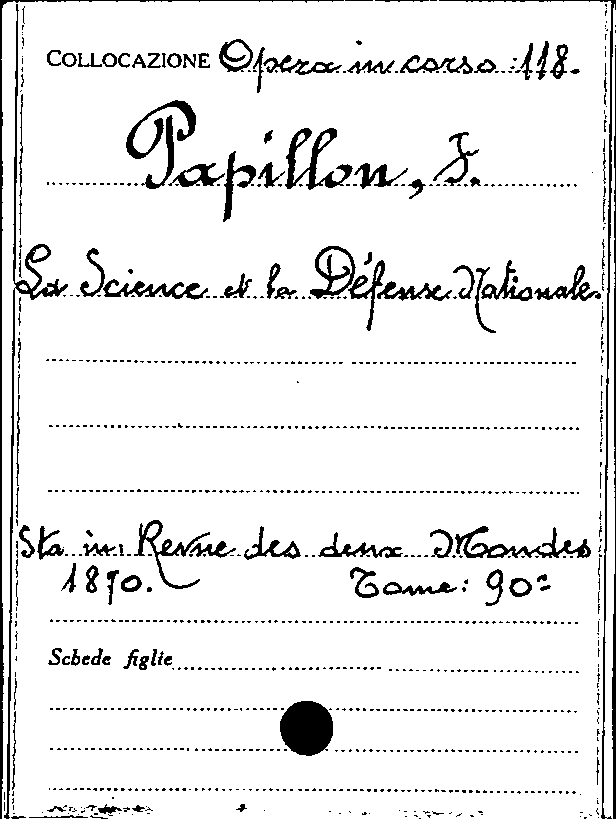 COLLOCAZIONE Opera in corso :118.
Papillon, F.
La Science et la Défense Nationale.
Sta in: Revue des deux Mondes
1870. Tome: 90º
Schede figlie